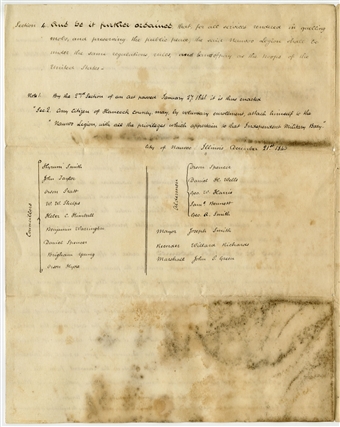 Section 4 And be it further ordained that for all services rendered in quelling
mobs, and preserving the public peace, the said Nauvoo Legion shall be
under the same regulations rules and as the troops of the
United States.
Note! By the 2nd Section of an act passed January 27 1841 it is thus enacted
"Sec 2 Any Citizen of Hancock County may by voluntary enrolment attach himself to the
"Nauvoo Legion with all the privileges which appertain to that Independent Military Body"
City of Nauvoo Illinois December 21st 1843
Councillors
Hyrum Smith
John Taylor
Orson Pratt
W W Phelps
Heber C Kimball
Benjamin Warrington
Daniel Spencer
Brigham Young
Orson Hyde
Aldermen
Orson Spencer
Daniel H. Wells
Geo W Harris
Saml Bennett
Geo A. Smith
Mayor Joseph Smith
Recorder Willard Richards
Marshall John P. Green